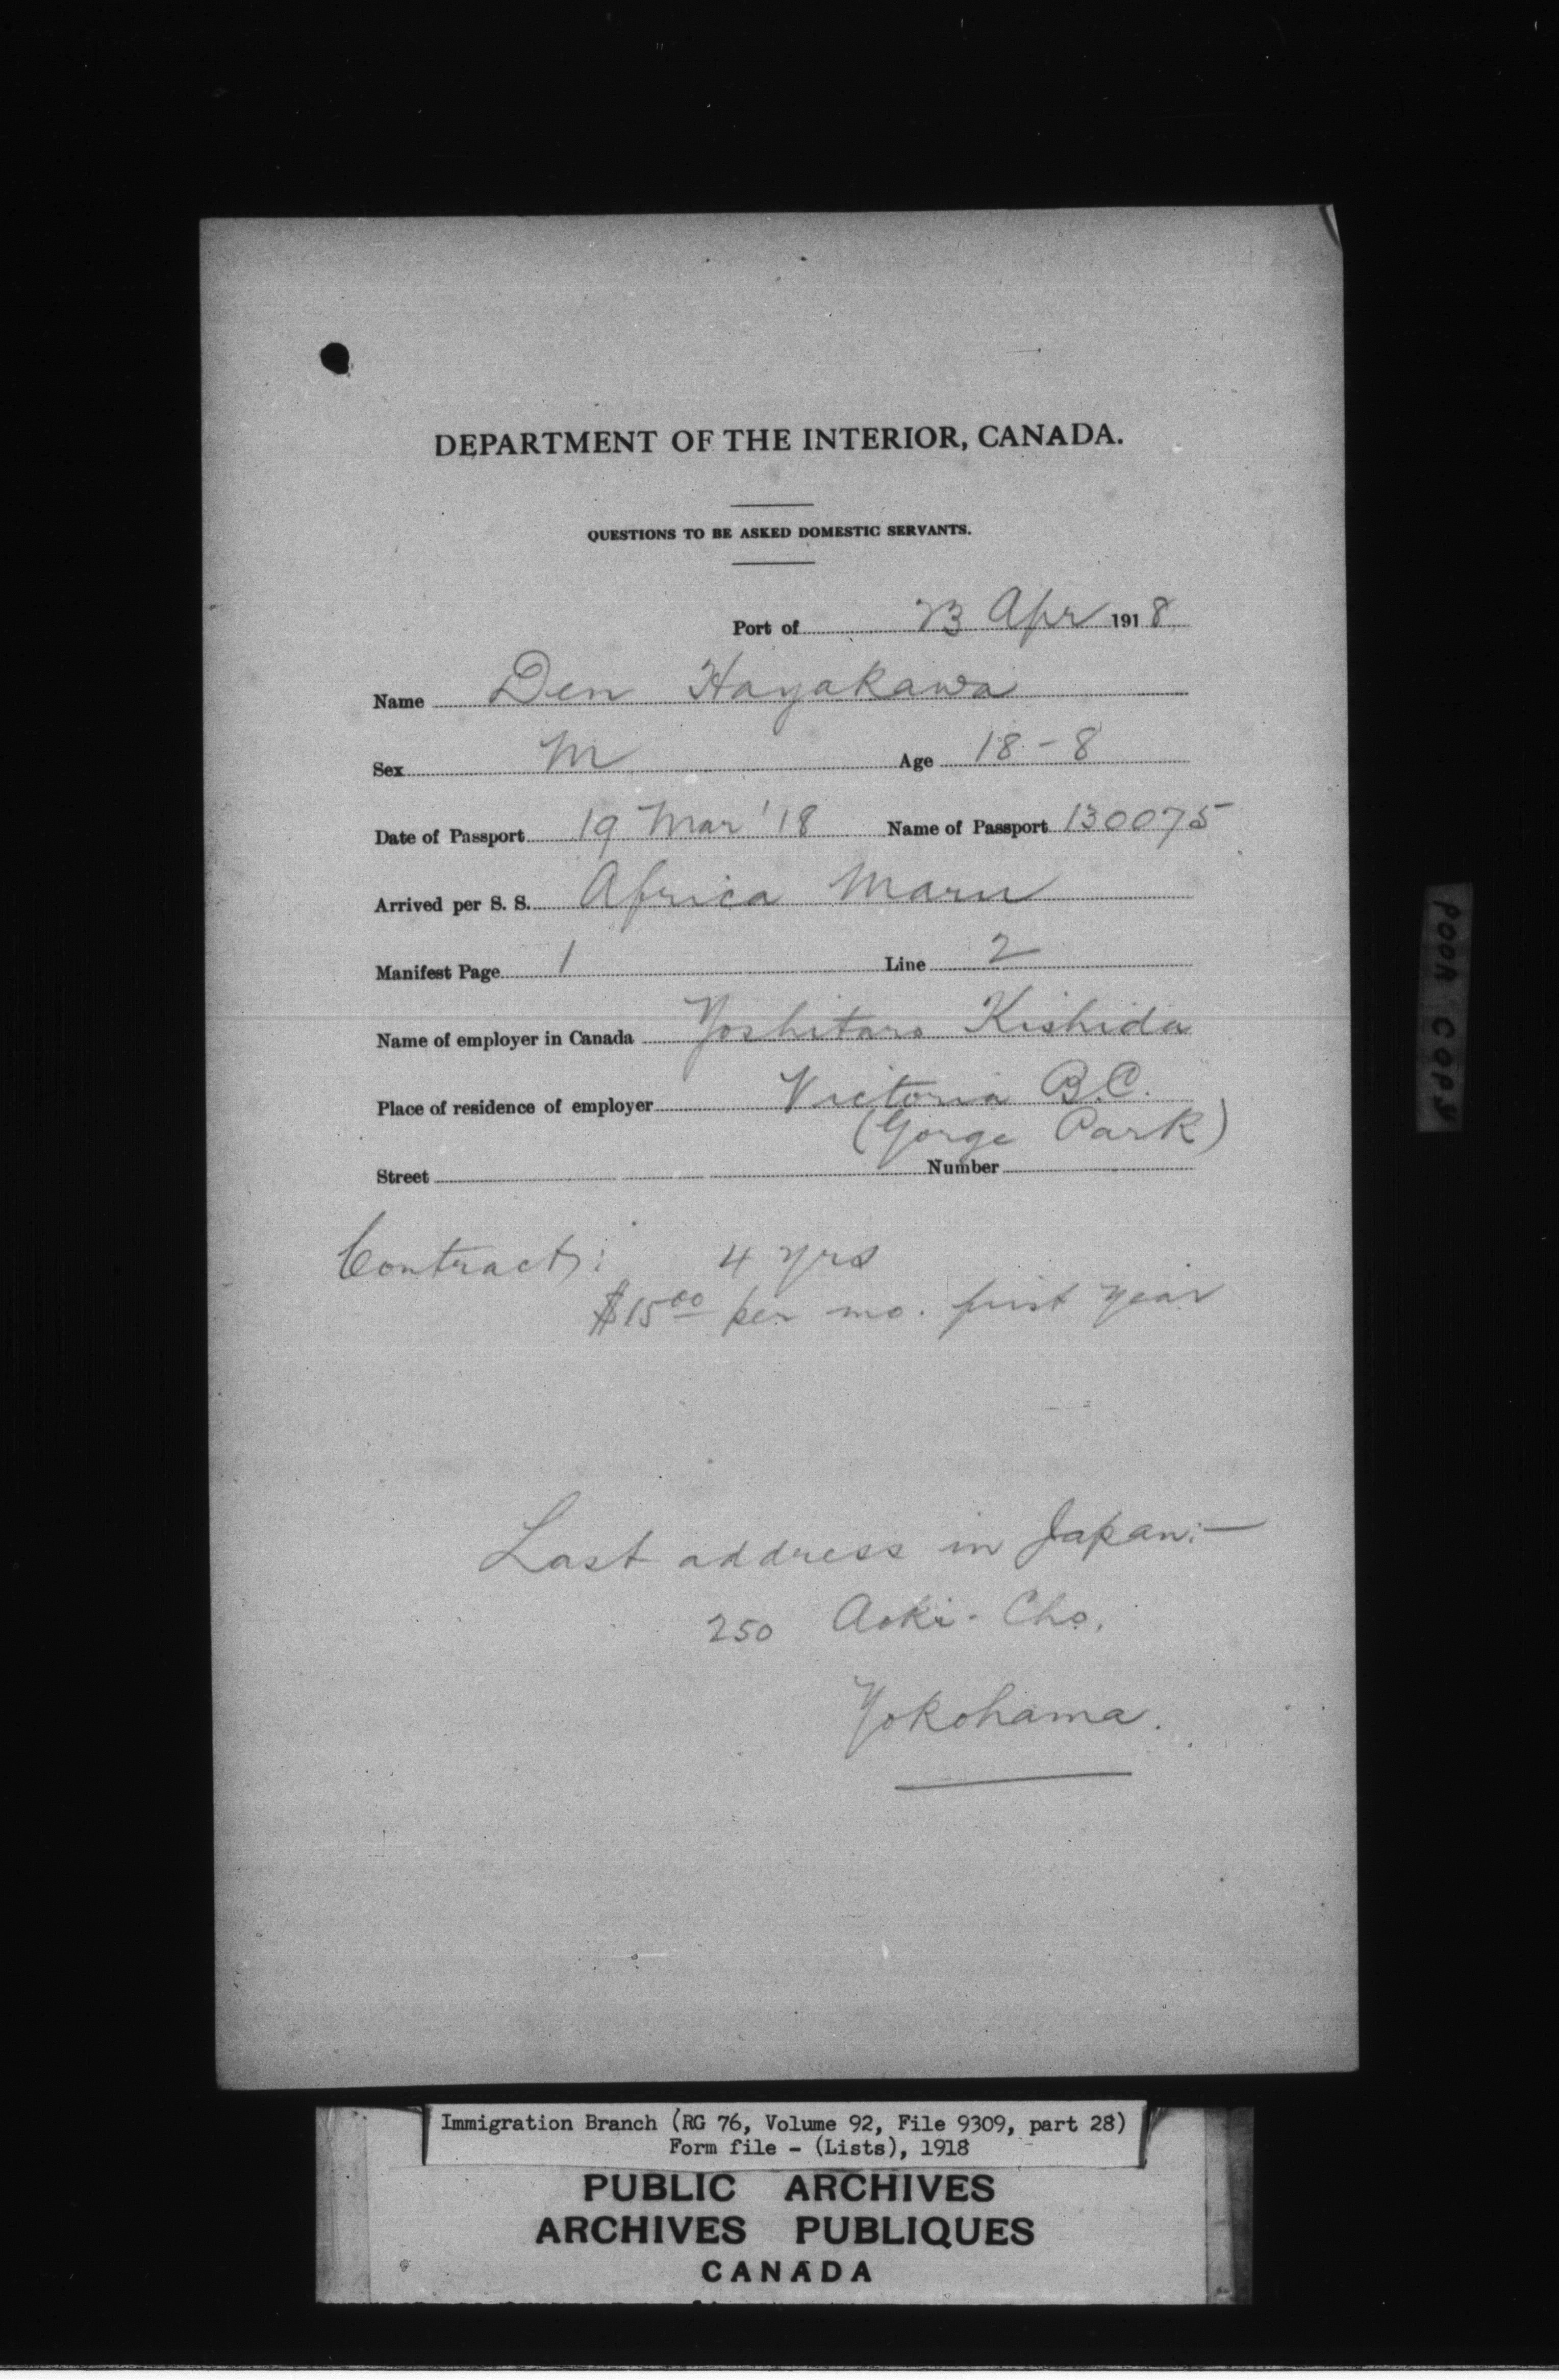 DEPARTMENT OF THE INTERIOR, CANADA.
QUESTIONS TO BE ASKED DOMESTIC SERVANTS.
Port of 23 Apr 1918
Name Den Hayakawa
Sex M Age 18-8
Date of Passport 19 Mar '18 Name of Passport 130075
Arrived per S. S. Africa Maru
Manifest Page 1 Line 2
Name of employer in Canada Yoshitaro Kishida
Place of residence of employer Victoria B.C.
(Gorge Park)
Street Number
Contract: 4 yrs
$15.00 per mo. first year
Last address in Japan:—
250 Aoki-Cho.
Yokohama.
POOR COPY
Immigration Branch (RG 76, Volume 92, File 9309, part 28)
Form file - (Lists), 1918
PUBLIC ARCHIVES
ARCHIVES PUBLIQUES
CANADA